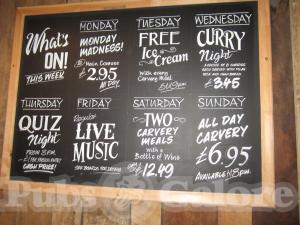 What's
ON!
THIS WEEK
MONDAY
MONDAY
MADNESS!
Main Courses
£2.95
ALL DAY
TUESDAY
FREE
Ice Cream
With every
Carvery Meal
WEDNESDAY
CURRY
Night
£3.45
THURSDAY
QUIZ
Night
FROM 8PM
CASH PRIZE!
FRIDAY
Regular
LIVE
MUSIC
SATURDAY
TWO
CARVERY
MEALS
with a
Bottle of Wine
£12.49
SUNDAY
ALL DAY
CARVERY
£6.95
AVAILABLE 'til 8PM
Pubs Galore